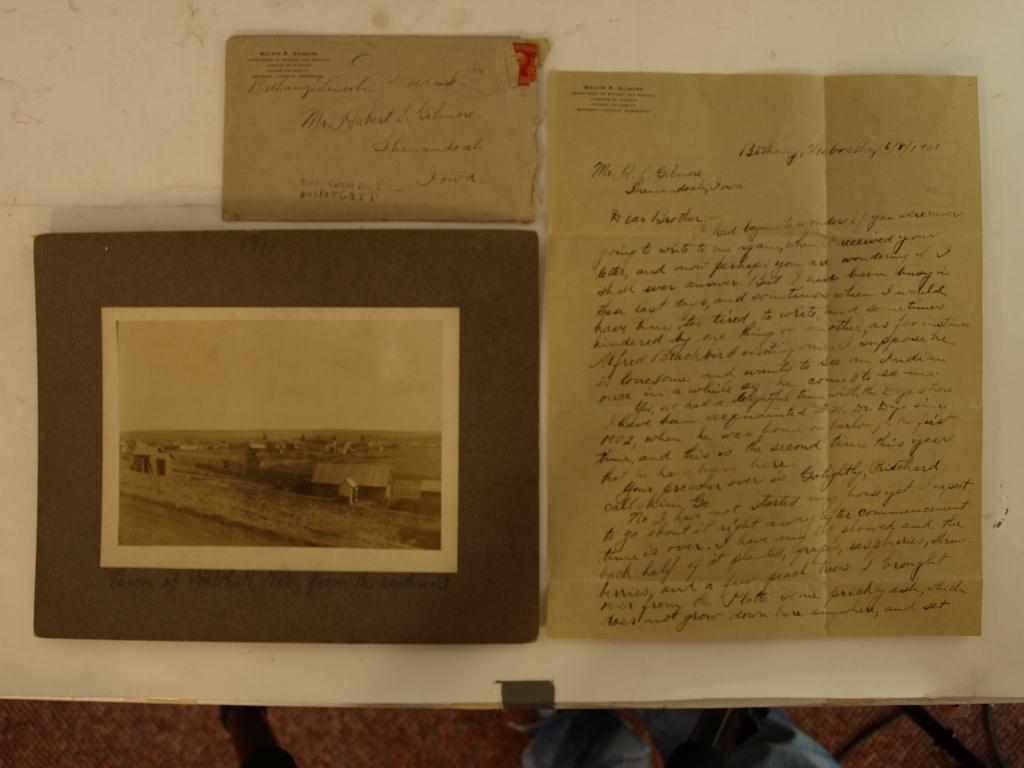 MELVIN R. GILMORE
Bethany, Lincoln Nebraska
Mr. Hubert L. Gilmore
Shenandoah
Iowa
1911
Town of Walthill, Neb., from the southwest
MELVIN R. GILMORE
Bethany, Nebraska,
Mr. H. L. Gilmore
Shenandoah, Iowa
Dear Brother:-
I had begun to wonder if you were never
going to write to me again, when I received your
letter, and now perhaps you are wondering if I
shall ever answer. But I have been busy in
these last days, and sometimes when I would
have time too tired, to write, and sometimes
hindered by one thing or another, as for instance
Alfred Blackbird visiting me. I suppose he
is lonesome and wants to see an Indian
once in a while so he comes to see me.
Yes, we had a delightful time with the Dyes here.
I have been acquainted with Dr. Dye since
1902, when he was home on furlough the first
time, and this is the second time this year
that he has been here.
Your preacher over is Golightly, Pritchard
calls him, Go.
No I have not started my house yet. I expect
to go about it right away after commencement
time is over. I have my lot plowed and the
back half of it planted, grapes, raspberries, straw-
berries, and a few peach trees I brought
over from the Platte some prickly ash, which
does not grow down here anywhere, and set